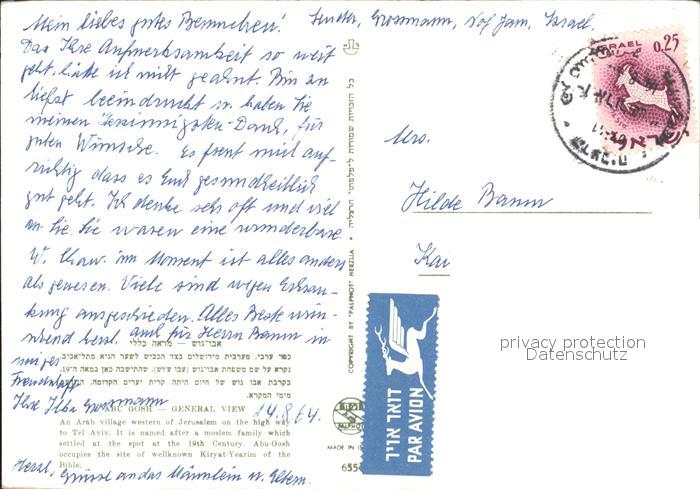 Mein liebes gutes
Sender, Grossmann, Nof Jam, Israel
Das Ihre Aufmerksamkeit so weit
geht, hätte ich nicht geahnt. Bin zu
tiefst beeindruckt u. haben Sie
meinen herzinnigsten Dank, für
guten Wünsche. Es freut mich auf-
richtig dass es Euch gesundheitlich
gut geht. Ich denke sehr oft und viel
an Sie. Sie waren eine wunderbare
W. im Moment ist alles anders
als gewesen. Viele sind wegen Erkran-
kung ausgeschieden. Alles Beste wün-
schend herzl. auch für Herrn Baum in
inniger
Freundschaft
Ihre Ilka Grossmann
14.8.64.
Herzl. Grüsse an das Männlein u. Eltern.
אבו-גוש – מראה כללי
כפר ערבי, מערבית מירושלים בצד הכביש לשער הגיא ותל-אביב.
נקרא על שם משפחת אבו-גוש (עבו עיוש), שהתישבה כאן במאה הי"ט.
בקרבת אבו גוש של היום היתה קרית יערים הקדומה,
מימי המקרא.
ABU GOSH — GENERAL VIEW
An Arab village western of Jerusalem on the high way
to Tel Aviv. It is named after a moslem family which
settled at the spot at the 19th Century. Abu-Gosh
occupies the site of wellknown Kiryat-Yearim of the
Bible.
כל הזכויות שמורות ל"פלפוט" הרצליה
COPYRIGHT BY "PALPHOT" HERZLIA
PALPHOT
MADE IN
655
ISRAEL
0.25
ישראל
Mrs.
Hilde Baum
Kai
דואר אויר
PAR AVION
privacy protection
Datenschutz